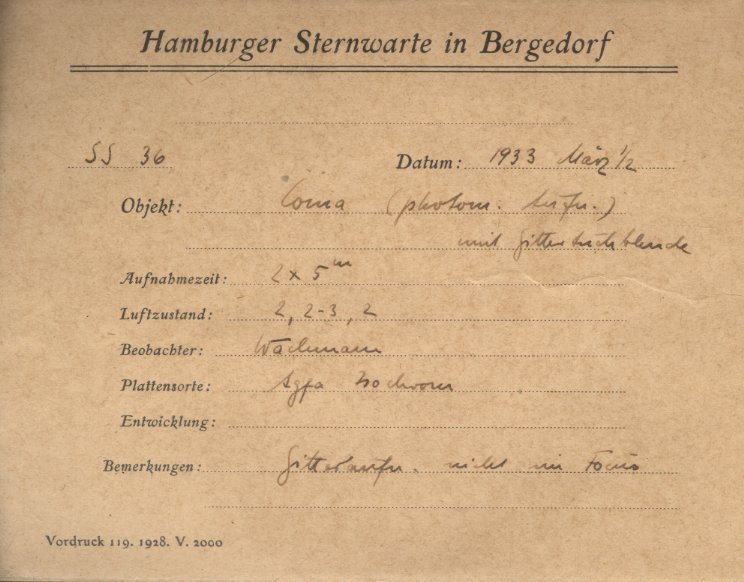 Hamburger Sternwarte in Bergedorf
SS 36 Datum: 1933 März 1/2
Objekt: Coma (photom. Aufn.)
mit Gitter
Aufnahmezeit: 2 x 5m
Luftzustand: 2, 2-3, 2
Beobachter: Wachmann
Plattensorte: Agfa Isochrom
Entwicklung:
Bemerkungen: Gitteraufn. nicht im Focus
Vordruck 119. 1928. V. 2000